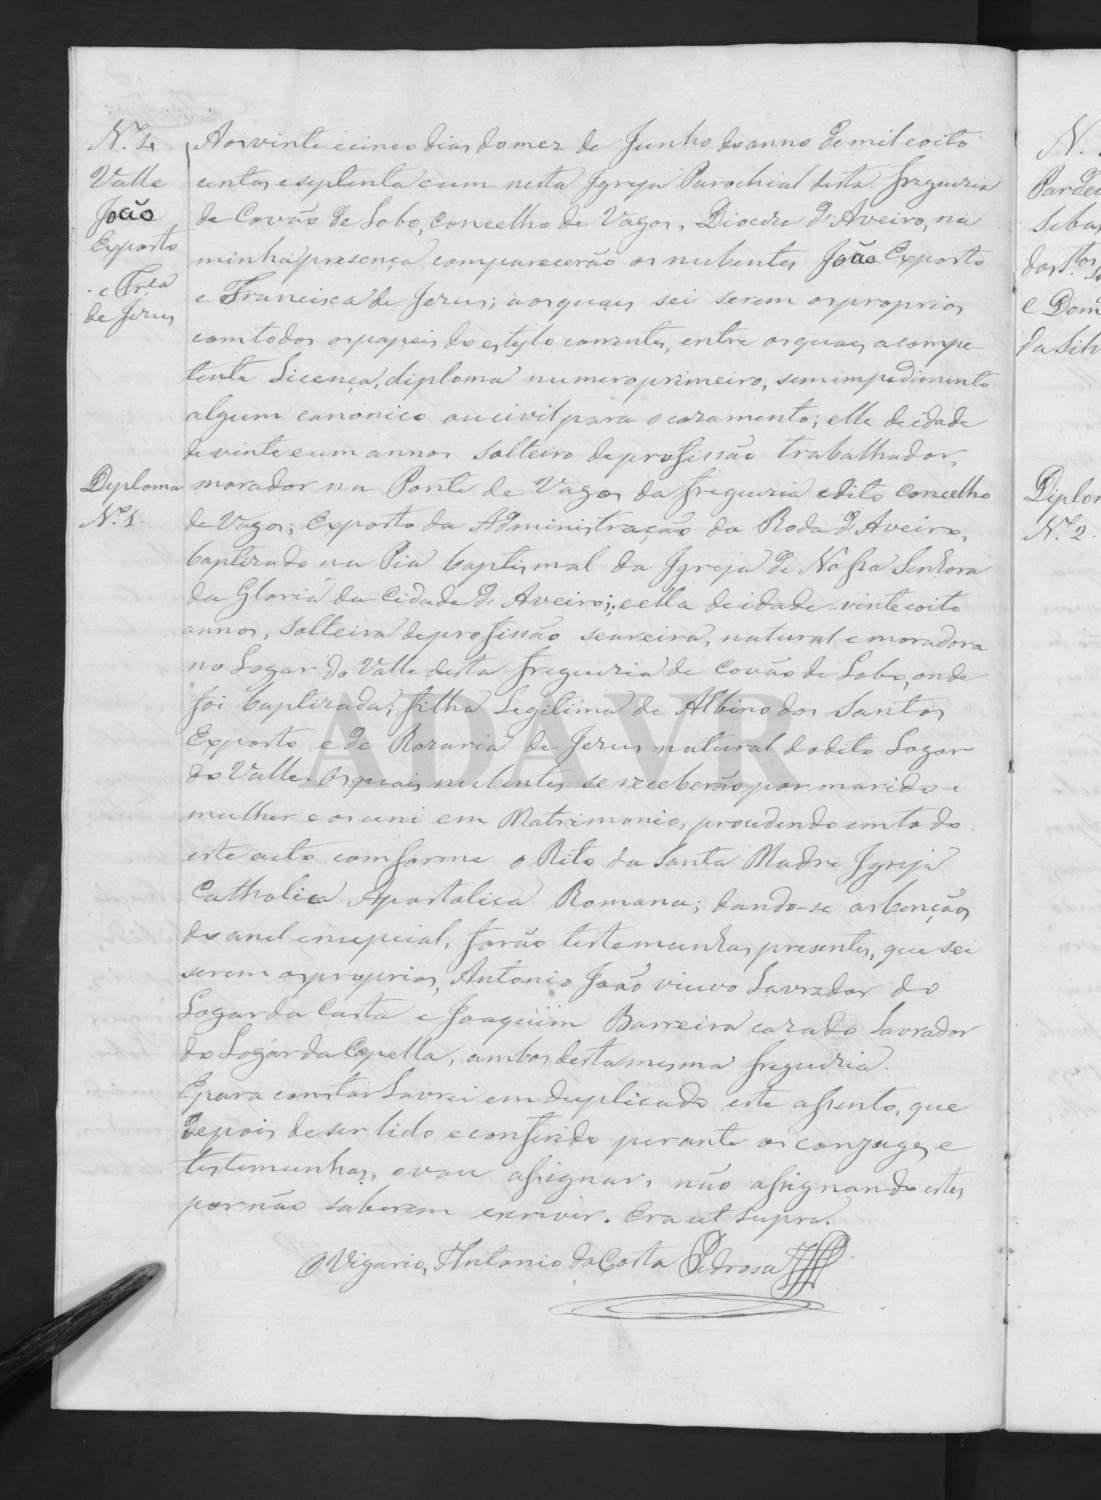 N.º 4
Valle
João
Exposto
e Fr.ca
de Jesus
Aos vinte e cinco dias do mez de Junho do anno de mil e oito
centos e septenta e um nesta Igreja Parochial desta freguezia
de Covão de Lobo, concelho de Vagos, Diocese d'Aveiro, na
minha presença comparecerão os nubentes João Exposto
e Francisca de Jesus; aos quaes sei serem os proprios
com todos os papeis do estylo correntes, entre os quaes a compe-
tente Licença, diploma numero primeiro, sem impedimento
algum canonico ou civil para o cazamento; elle de idade
de vinte e um annos solteiro de profissão trabalhador,
Deploma
N.º 1.
morador na Ponte de Vagos da freguezia e dito concelho
de Vagos; Exposto da Administração da Roda d'Aveiro,
baptizado na Pia baptismal da Igreja de Nossa Senhora
da Gloria da Cidade d'Aveiro; e ella de idade vinte e oito
annos, Solteira de profissão seareira, natural e moradora
no Logar do Valle desta freguezia de Covão de Lobo, onde
foi baptizada; filha Legitima de Albino dos Santos
Exposto e de Rozaria de Jesus natural do dito Logar
do Valle. Os quais nubentes se receberão por marido e
mulher e os uni em Matrimonio, procedendo em todo
este acto comforme o Rito da Santa Madre Igreja
Catholica Apostolica Romana; dando-se as bençãos
do anel e nupcial, forão testemunhas presentes, que sei
serem os proprios, Antonio João viuvo Lavrador do
Logar da Costa e Joaquim Barreira cazado Lavrador
do Logar da Capella, ambos desta mesma freguezia.
E para constar Lavrei em duplicado este assento, que
depois de ser lido e conferido perante os conjuges e
testemunhas, o vou assignar, não assignando estes
por não saberem escrever. Era ut supra.
O Vigario, Antonio da Costa Pedrosa
N.
Sebas
e Dom
da Silv
Diplom
N.º 2.
ADAVR